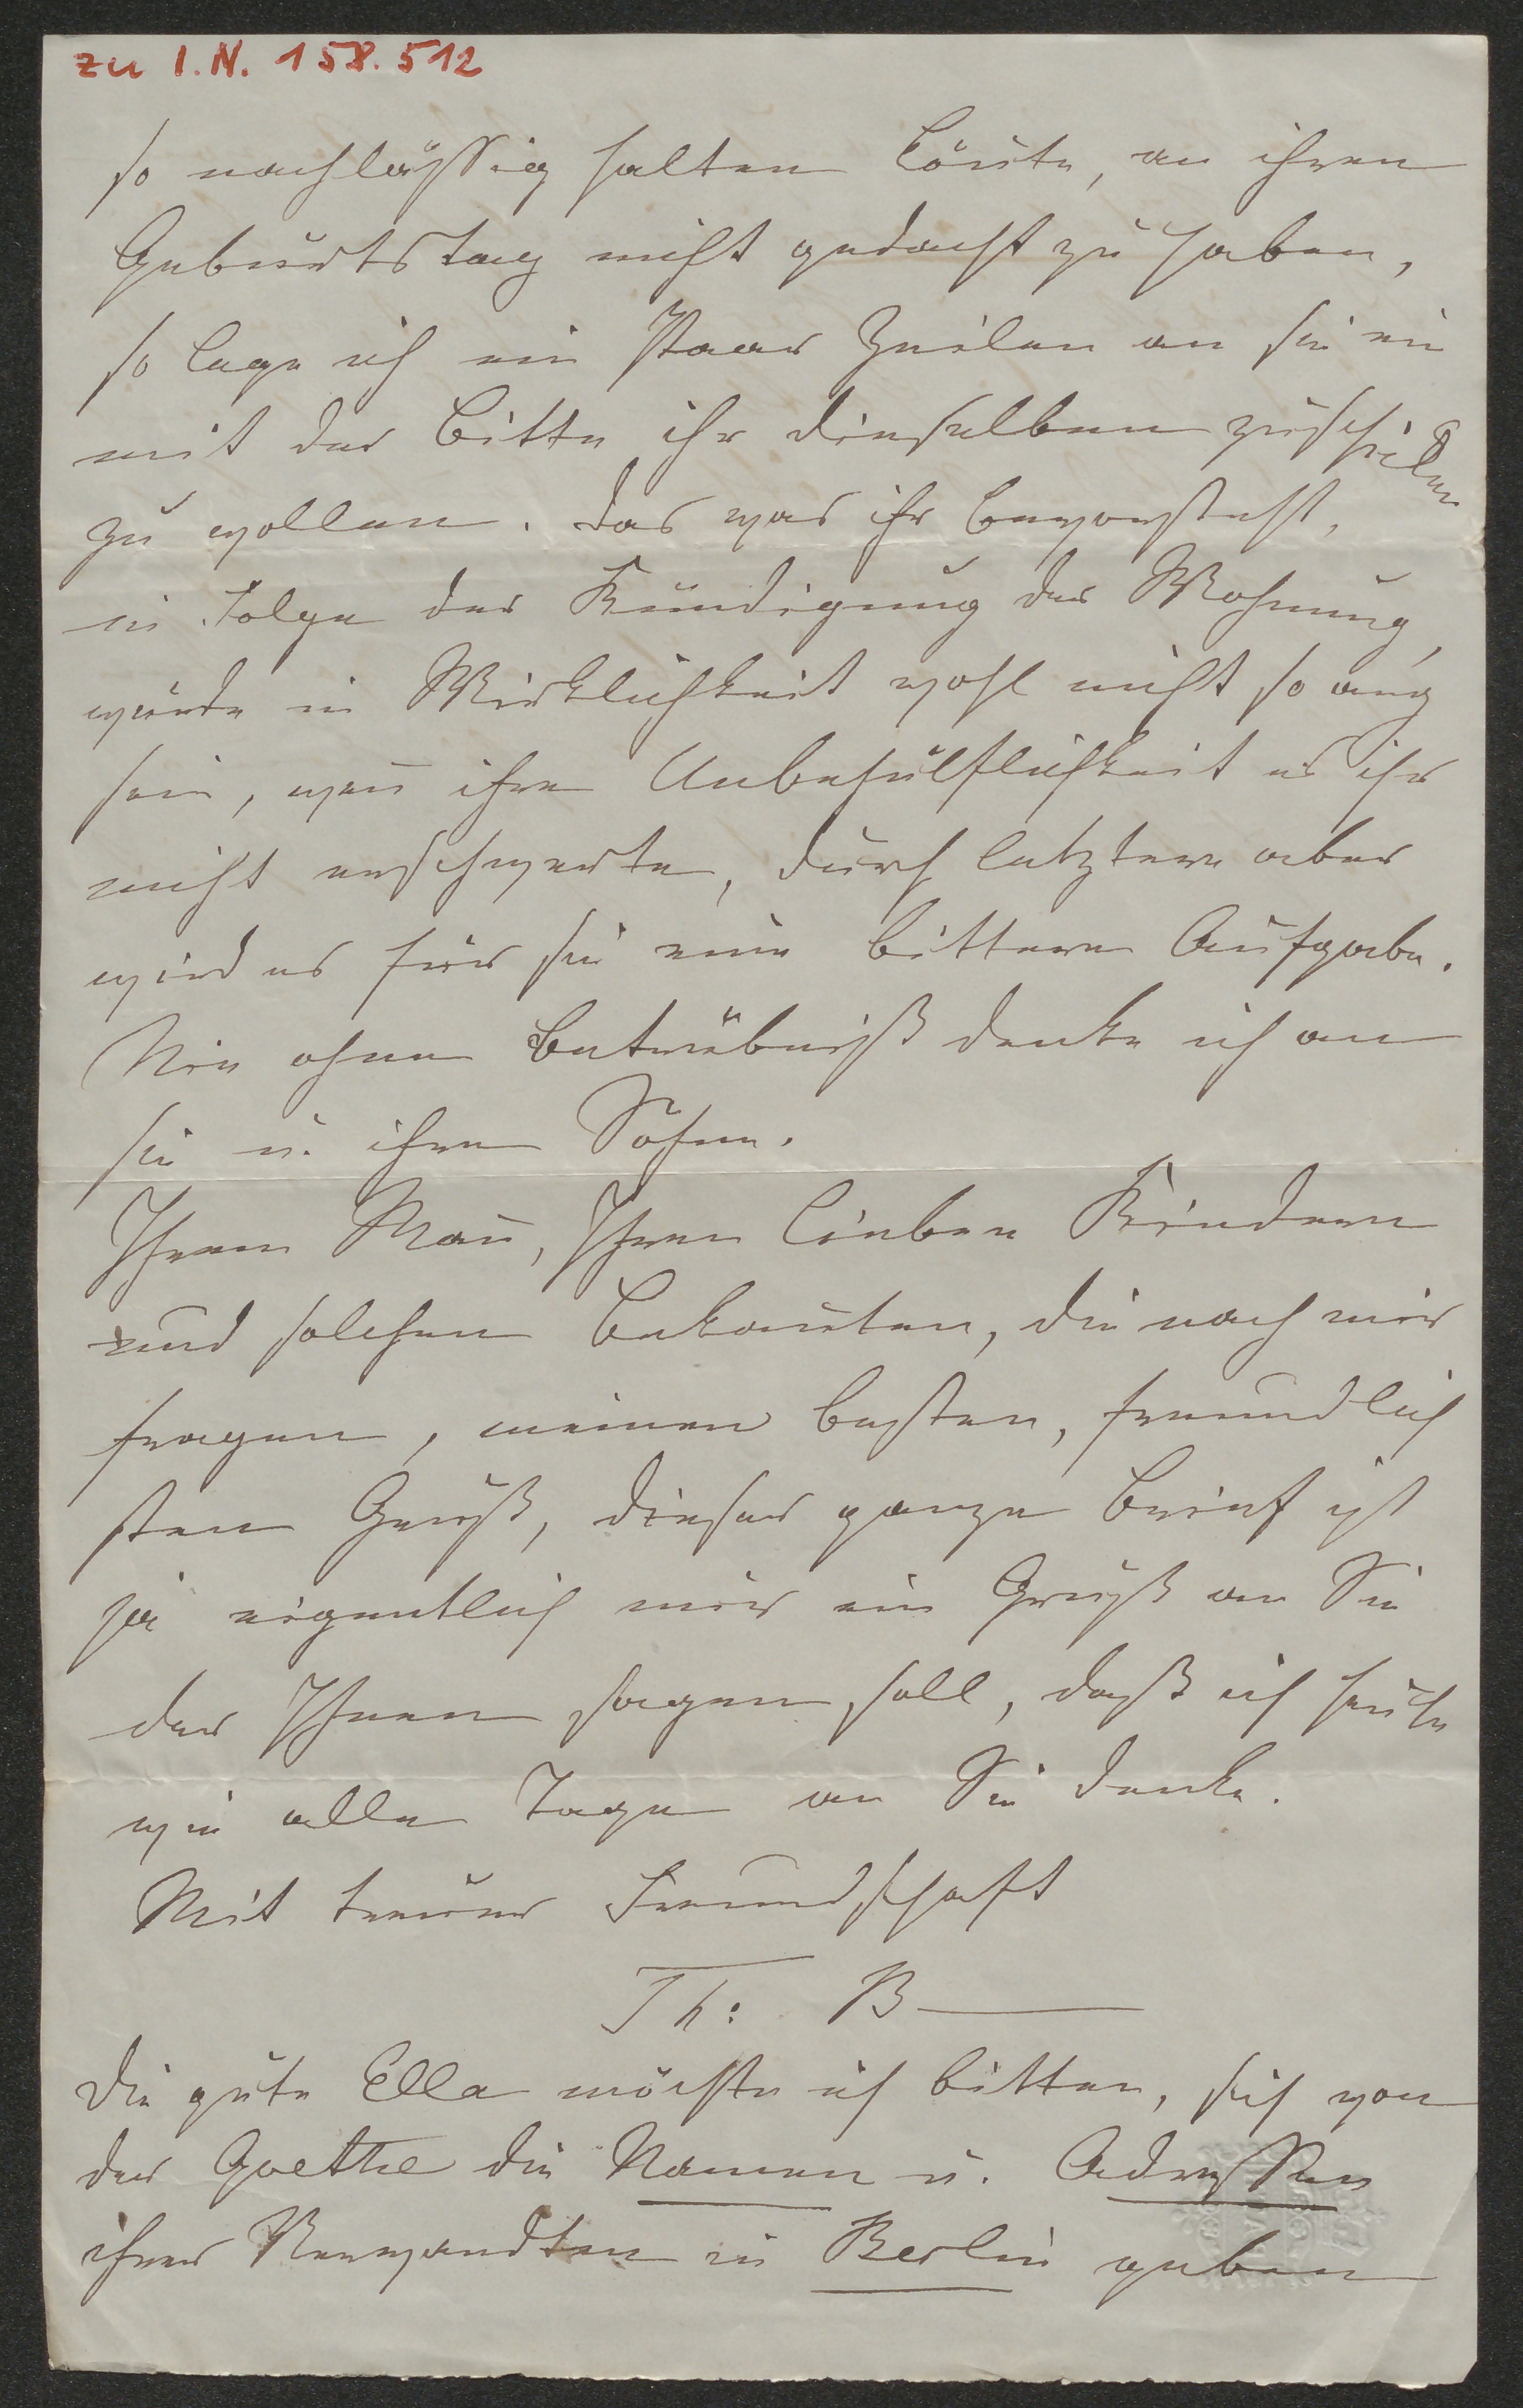 zu I.N. 158.512
so nachlässig halten kön̄te, an ihren
Geburtstag nicht gedacht zu haben,
so lege ich ein Paar Zeilen an sie ein
mit der Bitte ihr dieselben zuschicken
zu wollen. Das was ihr bevorsteht,
in Folge der Kündigung der Wohnung,
würde in Wirklichkeit wohl nicht so arg
sein, wen̄ ihre Unbehülflichkeit es ihr
nicht erschwerte, durch letztere aber
wird es für sie eine bittere Aufgabe.
Nie ohne Betrübniß denke ich an
sie u. ihre Söhne.
Ihrem Man̄, Ihren lieben Kindern
und solchen Bekan̄ten, die nach mir
fragen, meinen besten, freundlich
sten Gruß, dieser ganze Brief ist
ja eigentlich nur ein Gruß an Sie
der Ihnen sagen soll, daß ich heute
wie alle Tage an Sie denke.
Mit treuer Freundschaft
Th: B
Die gute Ella möchte ich bitten, sich von
der Goethe die Namen u. Adressen
ihrer Verwandten in Berlin geben